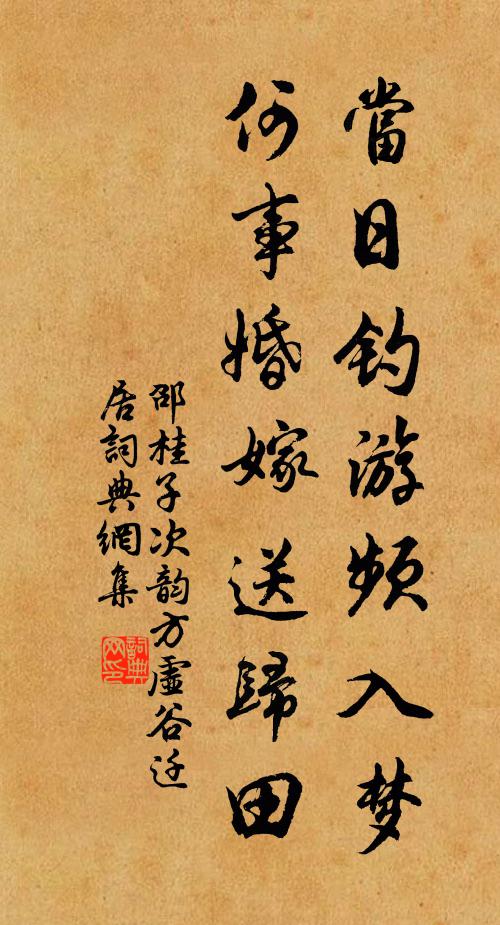 當日钓游频入梦
何事婚嫁送歸田
邵桂子次韵方虛谷迁
居詞典網集
詞典
网印